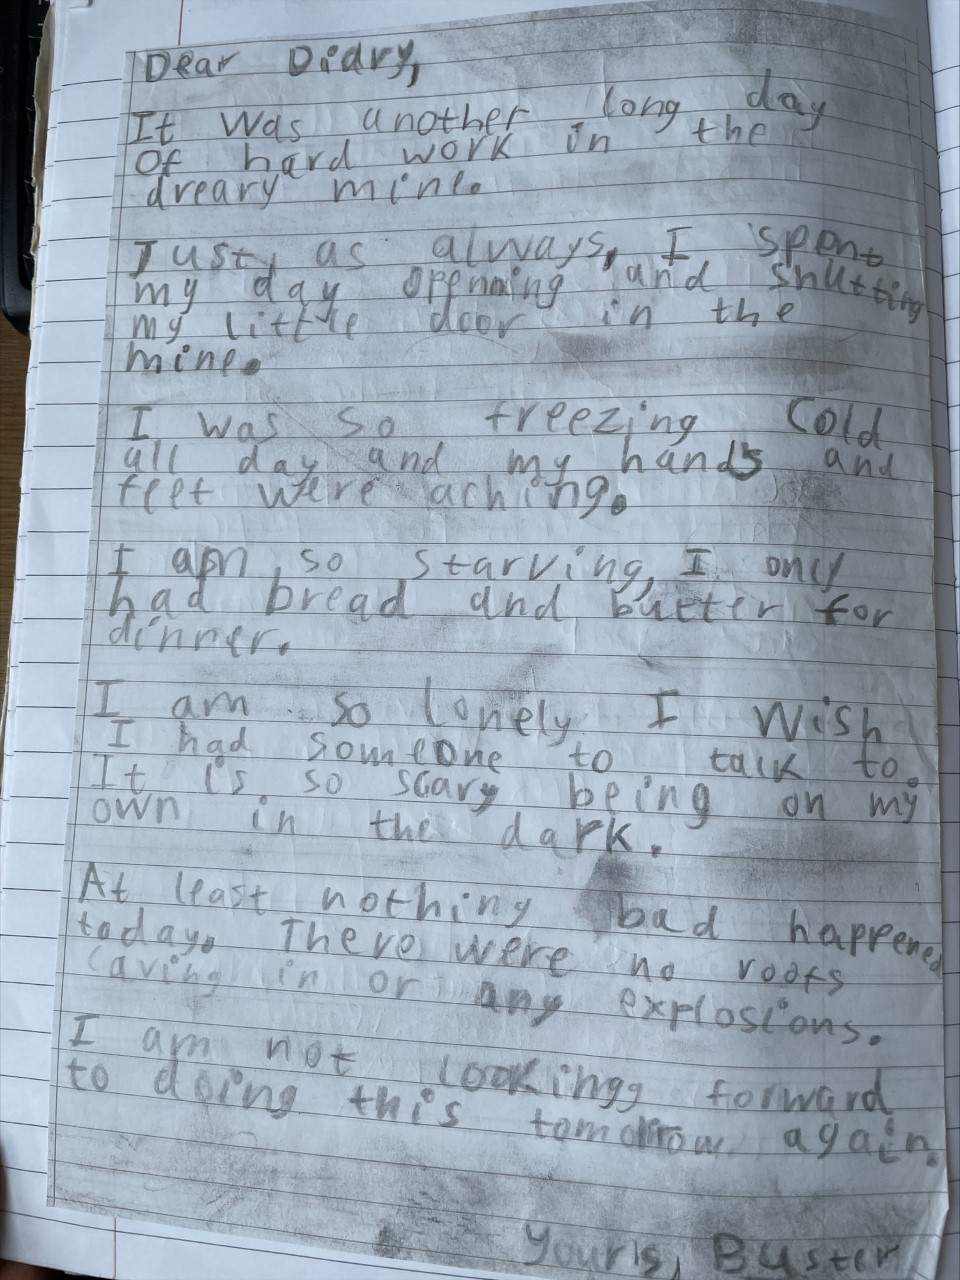 Dear Diary,
It was another long day
of hard work in the
dreary mine.
Just, as always, I spent
my day openning and shutting
my little door in the
mine.
I was so freezing cold
all day and my hands and
feet were aching.
I am so starving, I only
had bread and butter for
dinner.
I am so lonely I wish
I had someone to talk to.
It is so scary being on my
own in the dark.
At least nothing bad happened
today. There were no roofs
caving in or any explosions.
I am not lookingg forward
to doing this tomorrow again.
Yours, Buster